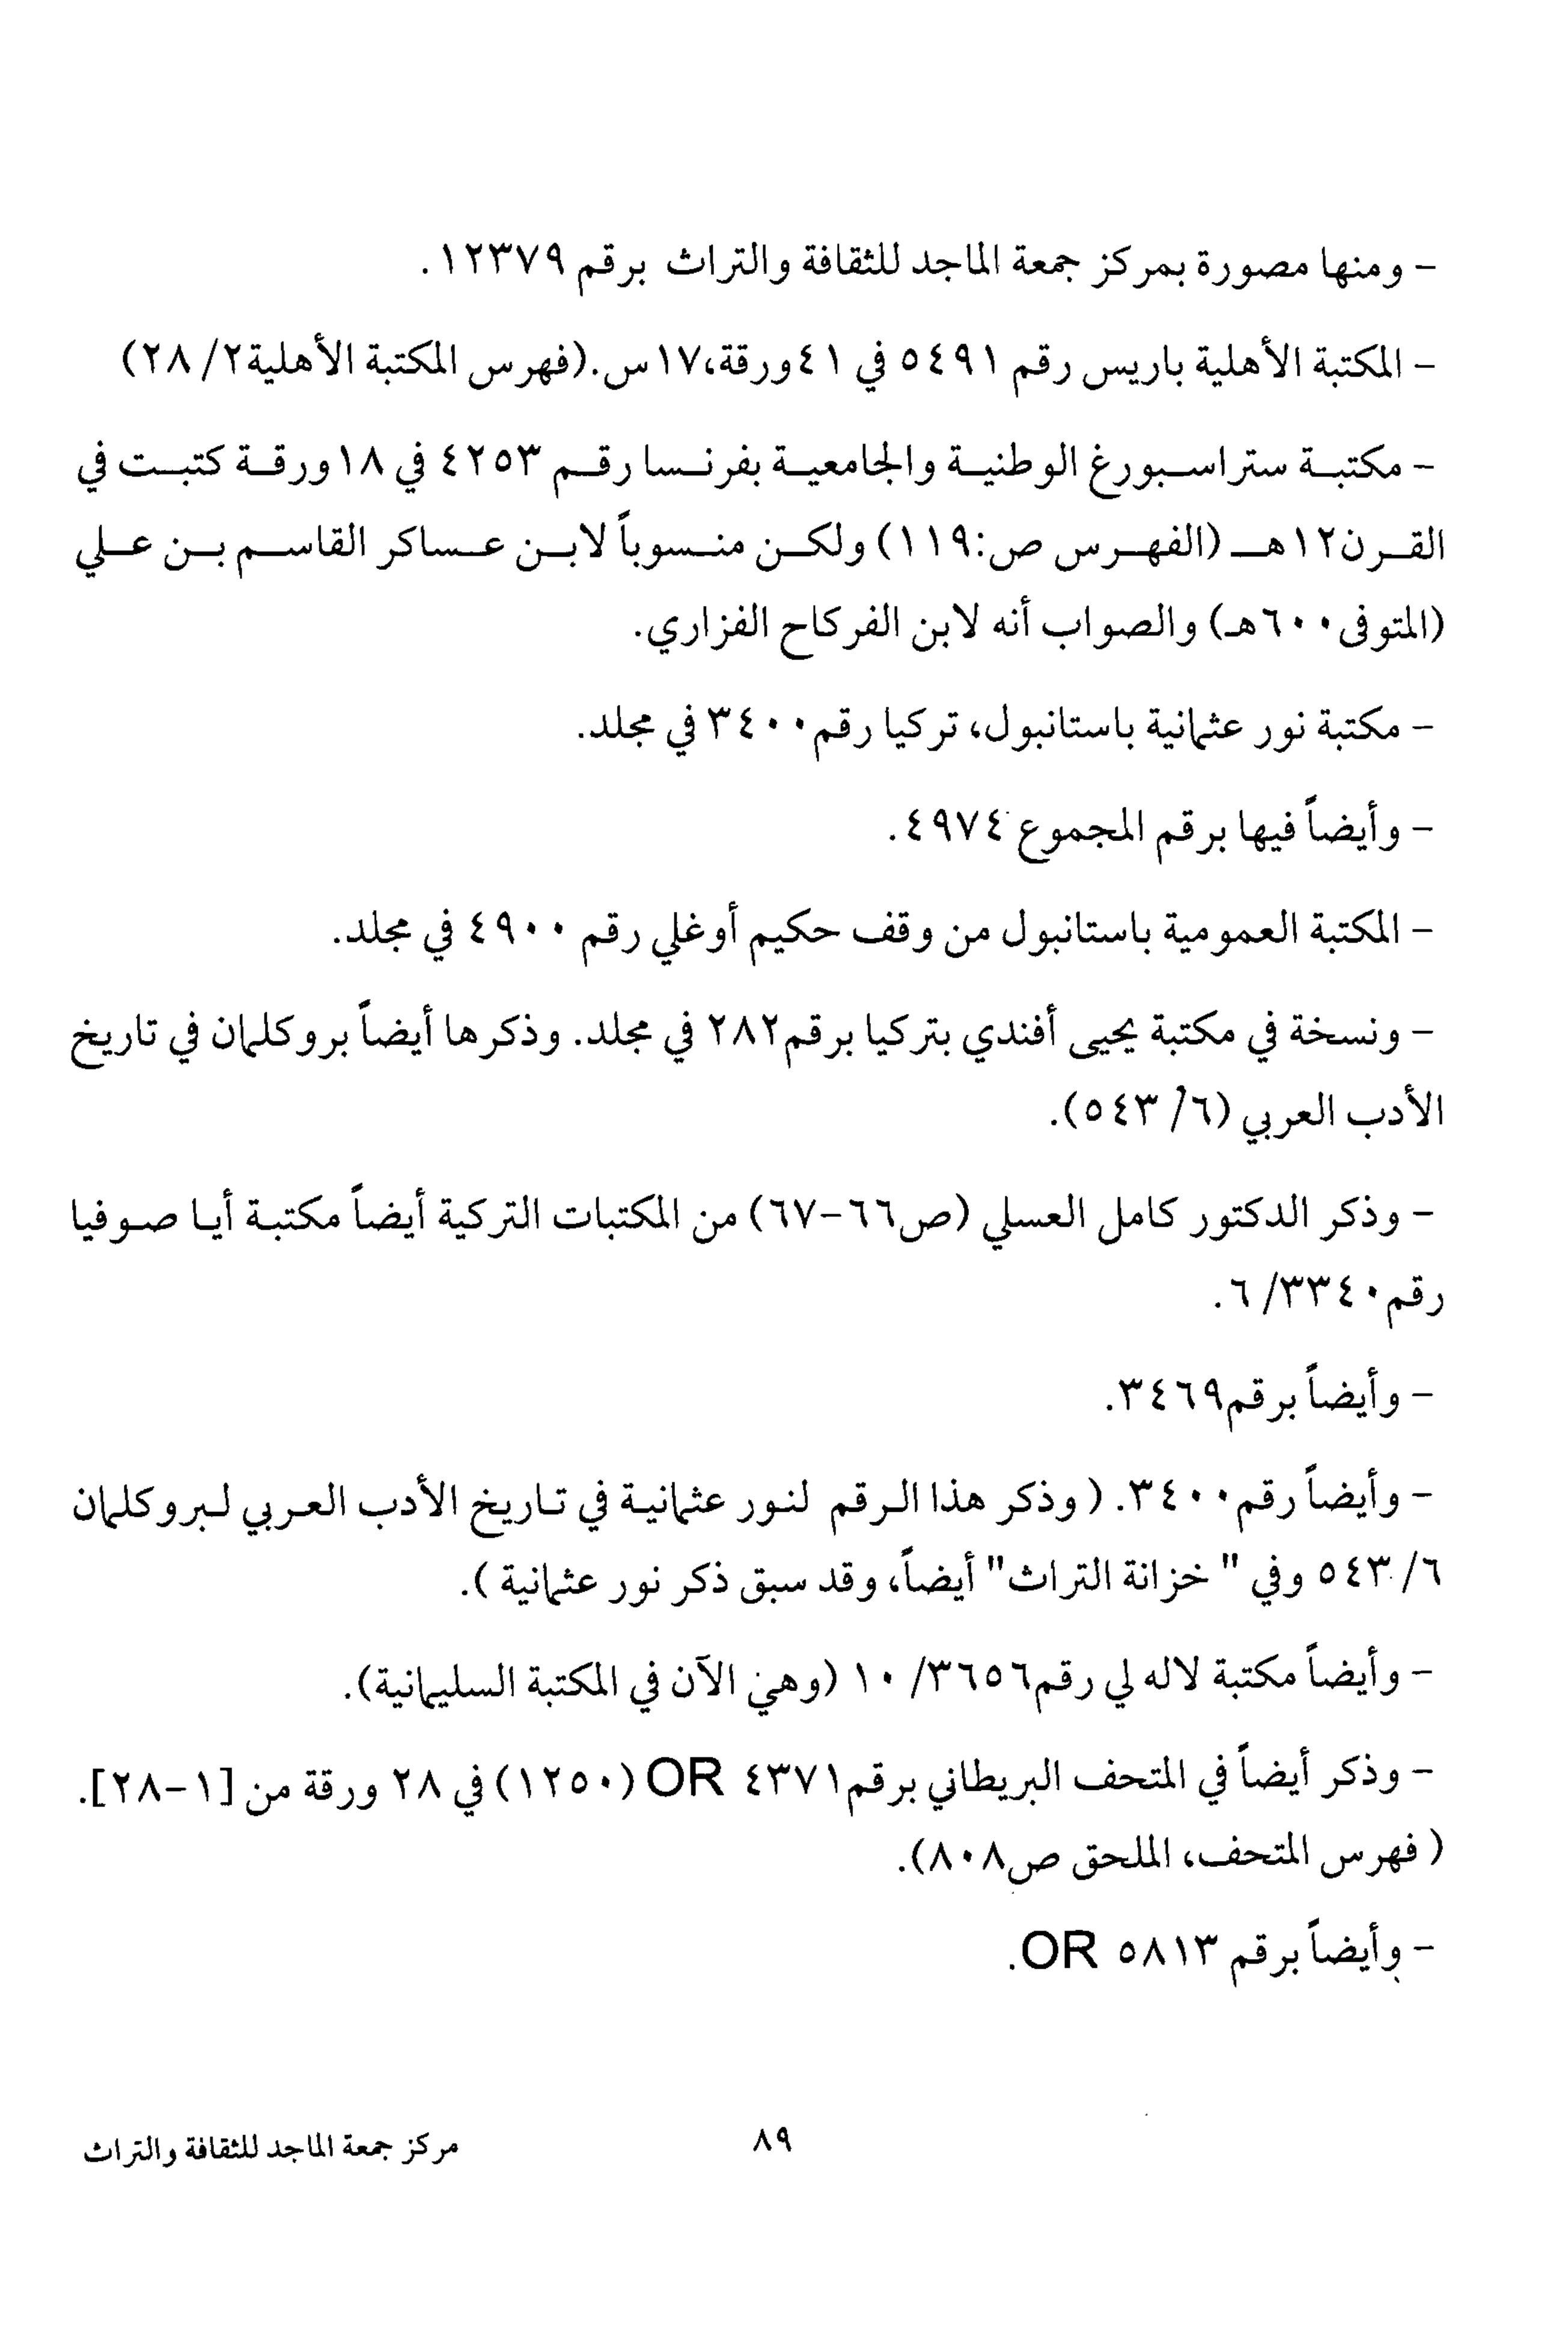 - ومنها مصورة بمركز جمعة الماجد للثقافة والتراث برقم ١٢٣٧٩.
- المكتبة الأهلية باريس رقم ٥٤٩١ في ٤١ورقة،١٧س.(فهرس المكتبة الأهلية٢/ ٢٨)
- مكتبـة ستراسـبورغ الوطنيـة والجامعيـة بفرنـسا رقـم ٤٢٥٣ في ١٨ورقـة كتبـت في
القـرن١٢هـ (الفهـرس ص:١١٩) ولكـن منـسوباً لابـن عـساكر القاسـم بـن عـلي
(المتوفى٦٠٠هـ) والصواب أنه لابن الفركاح الفزاري.
- مكتبة نور عثمانية باستانبول، تركيا رقم٣٤٠٠ في مجلد.
- وأيضاً فيها برقم المجموع ٤٩٧٤.
- المكتبة العمومية باستانبول من وقف حكيم أوغلي رقم ٤٩٠٠ في مجلد.
- ونسخة في مكتبة يحيى أفندي بتركيا برقم٢٨٢ في مجلد. وذكرها أيضاً بروكلمان في تاريخ
الأدب العربي (٦/ ٥٤٣).
- وذكر الدكتور كامل العسلي (ص٦٦-٦٧) من المكتبات التركية أيضاً مكتبـة أيـا صـوفيا
رقم٣٣٤٠/ ٦.
- وأيضاً برقم٣٤٦٩.
- وأيضاً رقم٣٤٠٠. ( وذكر هذا الـرقم لنـور عثمانيـة في تـاريخ الأدب العـربي لـبروكلمان
٦/ ٥٤٣ وفي " خزانة التراث" أيضاً، وقد سبق ذكر نور عثمانية ).
- وأيضاً مكتبة لاله لي رقم٣٦٥٦/ ١٠ (وهي الآن في المكتبة السليمانية).
- وذكر أيضاً في المتحف البريطاني برقم٤٣٧١ OR (١٢٥٠) في ٢٨ ورقة من [١-٢٨].
( فهرس المتحف، الملحق ص٨٠٨).
- وأيضاً برقم ٥٨١٣ OR.
٨٩
مركز جمعة الماجد للثقافة والتراث